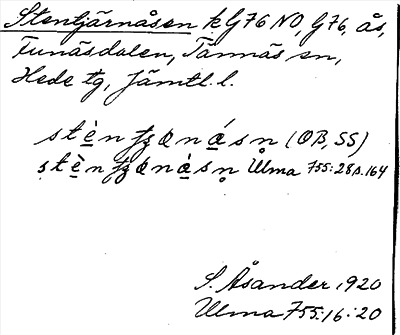 Stentjärnåsen k. G76 NO, G76, ås,
Funäsdalen, Tännäs sn,
Hede tg, Jämtl. l.
(OB, SS)
Ulma 755:28 s. 164
S. Åsander 1920
Ulma 755:16:20